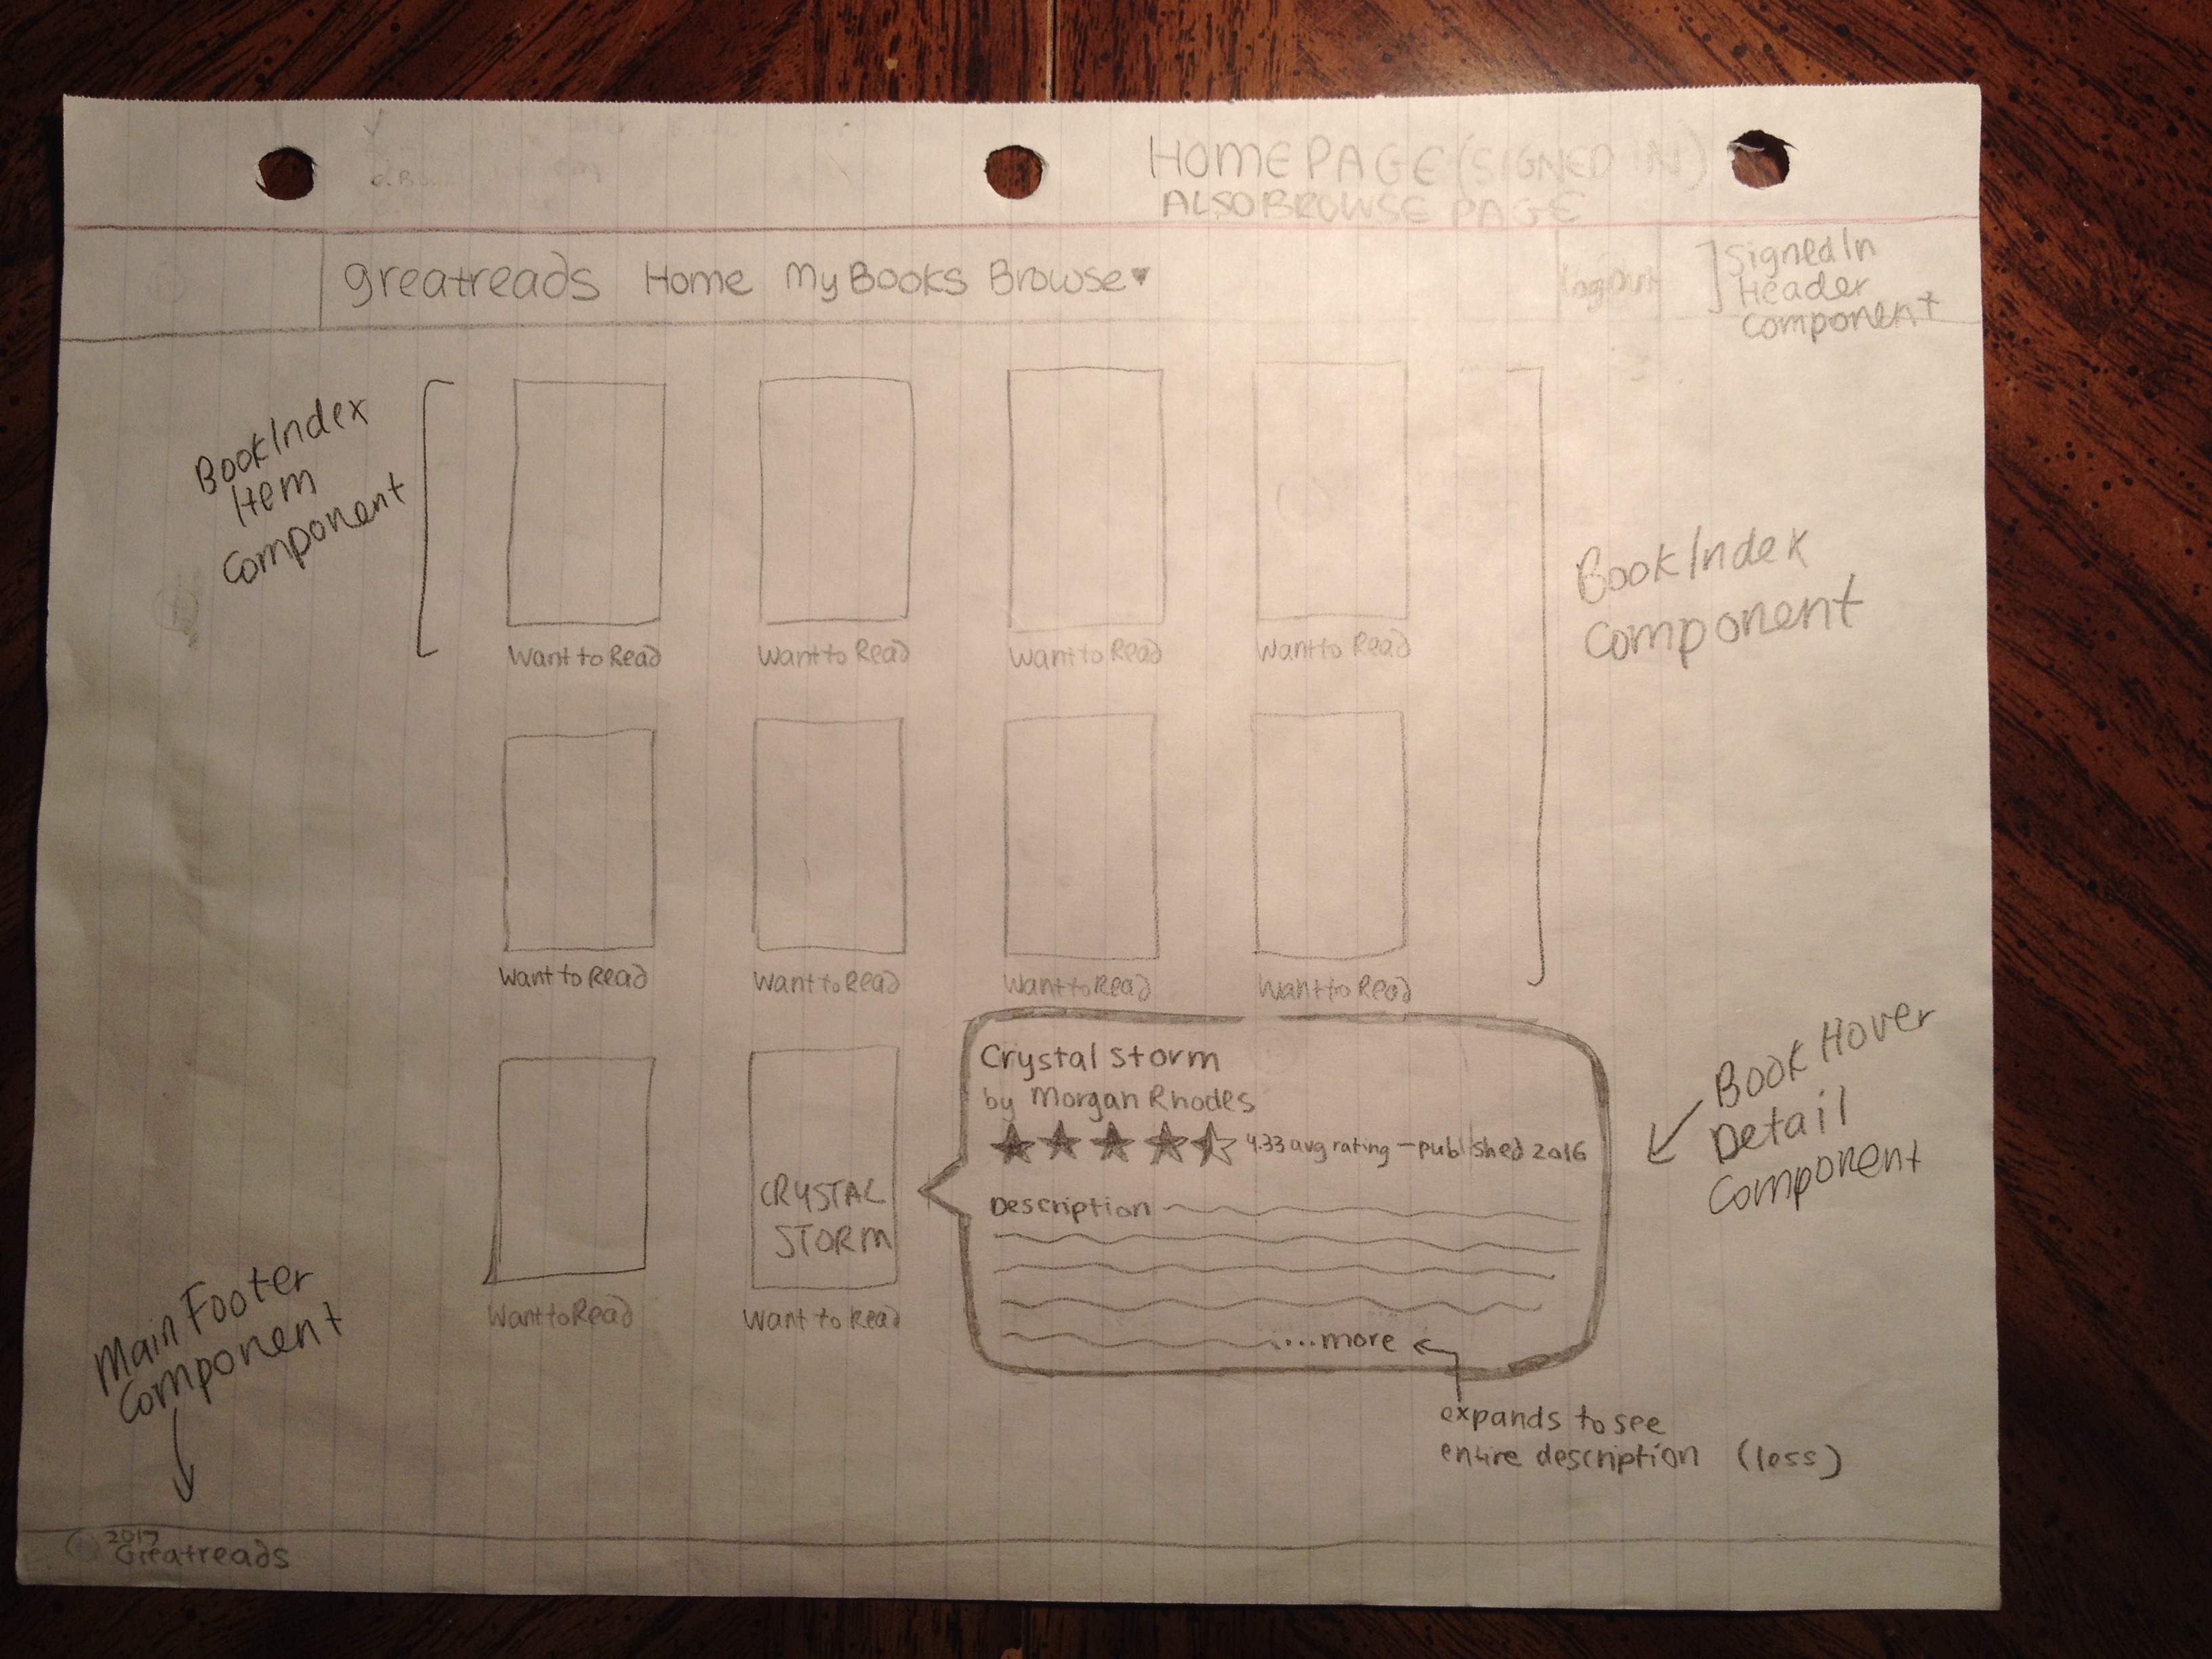 HOME PAGE (SIGNED IN)
ALSO BROWSE PAGE
greatreads Home My Books Browse▾ logout
SignedIn
Header
Component
BookIndex
Item
Component
BookIndex
Component
Want to Read Want to Read Want to Read Want to Read
Want to Read Want to Read Want to Read Want to Read
CRYSTAL
STORM
Want to Read Want to Read
Crystal Storm
by Morgan Rhodes
4.33 avg rating – published 2016
Description
....more
Book Hover
Detail
Component
expands to see
entire description (less)
Main Footer
Component
© 2017
Greatreads